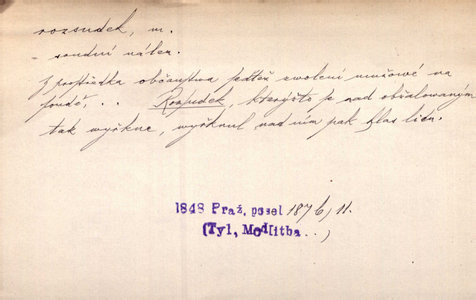 rozsudek, m.
- soudní nález.
Z prostředka občanstva jedtéž zvolení mužové na
soudě, . . Rozsudek, kterýžto se nad obžalovaným
tak vyřkne, vyřknul nad ním pak hlas lidu.
1848 Praž. posel 1876, 11.
(Tyl, Modlitba . . )